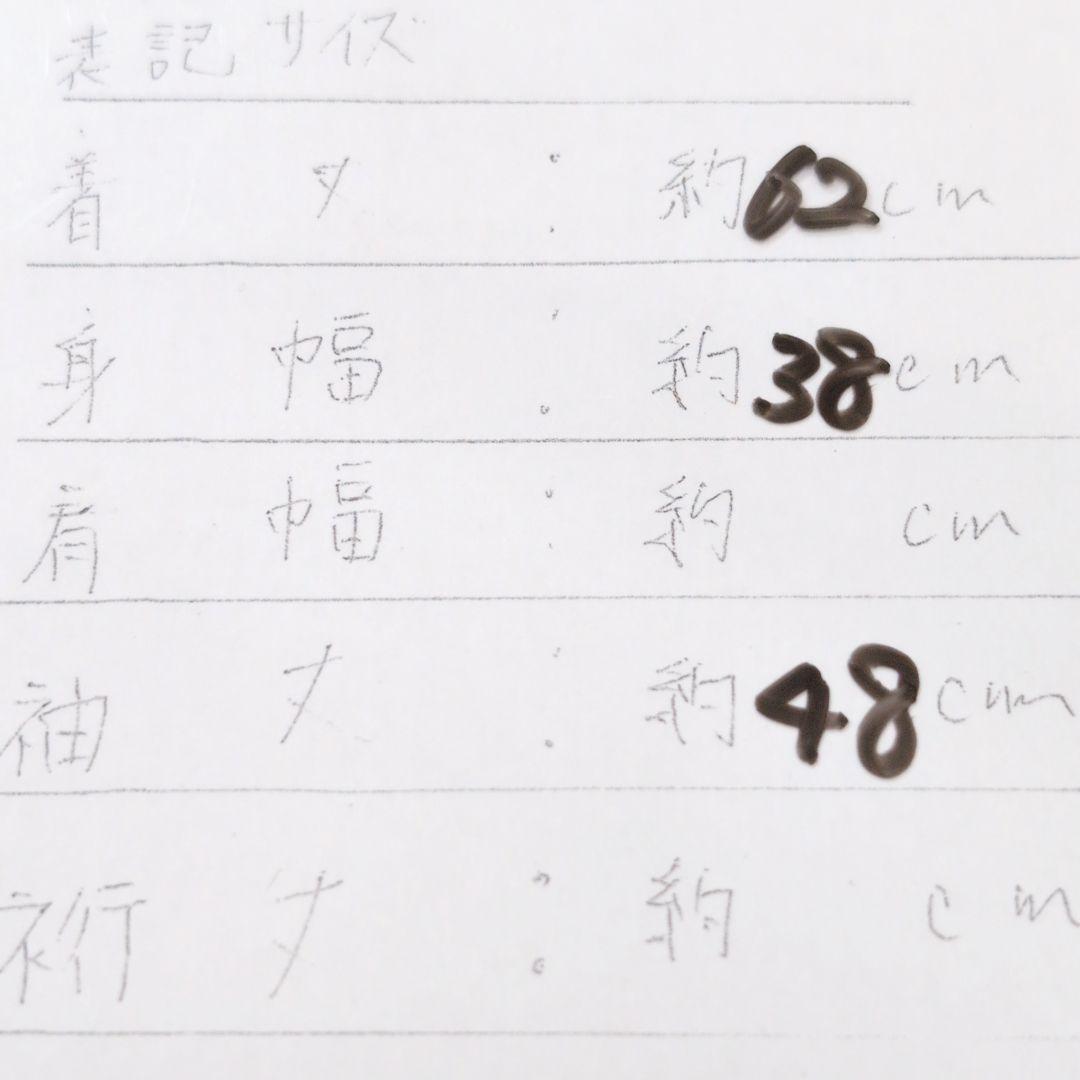 表記サイズ
着丈:約62cm
身幅:約38cm
肩幅:約 cm
袖丈:約48cm
裄丈:約 cm